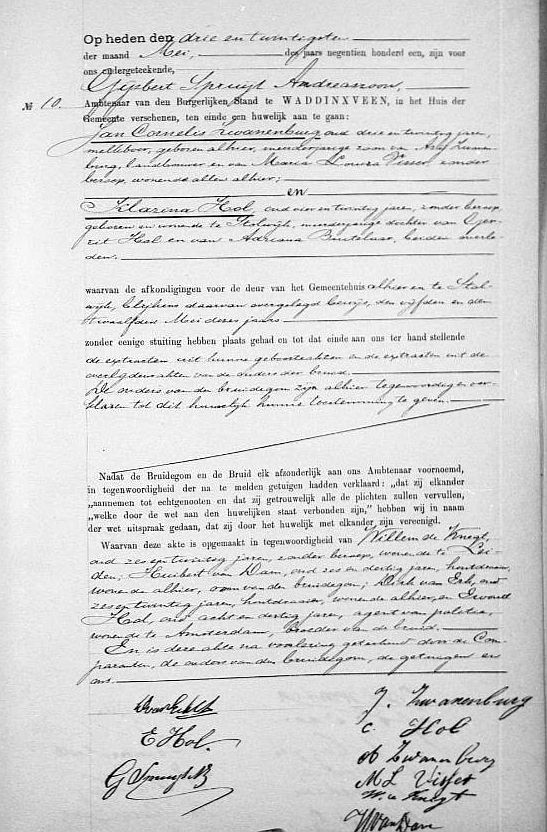 Op heden den drie en twintigsten
der maand Mei, des jaars negentien honderd een, zijn voor
ons ondergeteekende,
Gijsbert Spruyt Andreaszoon,
№ 10. Ambtenaar van den Burgerlijken Stand te WADDINXVEEN, in het Huis der
Gemeente verschenen, ten einde een huwelijk aan te gaan:
Jan Cornelis Zwanenburg, oud drie en twintig jaren,
melkboer, geboren alhier, meerderjarige zoon van Arie Zwanen-
burg, landbouwer en van Maria Louiza Visser zonder
beroep, wonende allen alhier;
en
Klazina Hol, oud vier en twintig jaren, zonder beroep,
geboren en wonende te Stolwijk, meerderjarige dochter van Ger-
rit Hol en van Adriana Buitelaar, beiden overle-
den.
waarvan de afkondigingen voor de deur van het Gemeentehuis alhier en te Stol-
wijk, blijkens daarvan overgelegd bewijs, den vijfden en den
twaalfden Mei dezes jaars
zonder eenige stuiting hebben plaats gehad en tot dat einde aan ons ter hand stellende
de extracten uit hunne geboorteakten en de extracten uit de
overlijdensakten van de ouders der bruid.
De ouders van den bruidegom zijn alhier tegenwoordig en ver-
klaren tot dit huwelijk hunne toestemming te geven.
Nadat de Bruidegom en de Bruid elk afzonderlijk aan ons Ambtenaar voornoemd,
in tegenwoordigheid der na te melden getuigen hadden verklaard: „dat zij elkander
„aannemen tot echtgenooten en dat zij getrouwelijk alle de plichten zullen vervullen,
„welke door de wet aan den huwelijken staat verbonden zijn,” hebben wij in naam
der wet uitspraak gedaan, dat zij door het huwelijk met elkander zijn vereenigd.
Waarvan deze akte is opgemaakt in tegenwoordigheid van Willem de Knegt,
oud zes en twintig jaren, zonder beroep, wonende te Lei-
den; Huibert van Dam, oud zes en dertig jaren, houtdraaier,
wonende alhier, oom van den bruidegom; Dirk van Eck, oud
zes en twintig jaren, houtdraaier, wonende alhier, en Ewoud
Hol, oud acht en dertig jaren, agent van politie,
wonende te Amsterdam, broeder van de bruid.
En is deze akte na voorlezing geteekend door de Com-
paranten, de ouders van den bruidegom, de getuigen en
ons.
J. Zwanenburg
D van Eck
C Hol
E Hol.
A Zwanenburg
G Spruyt Az
M L Visser
W. de Knegt
H van Dam